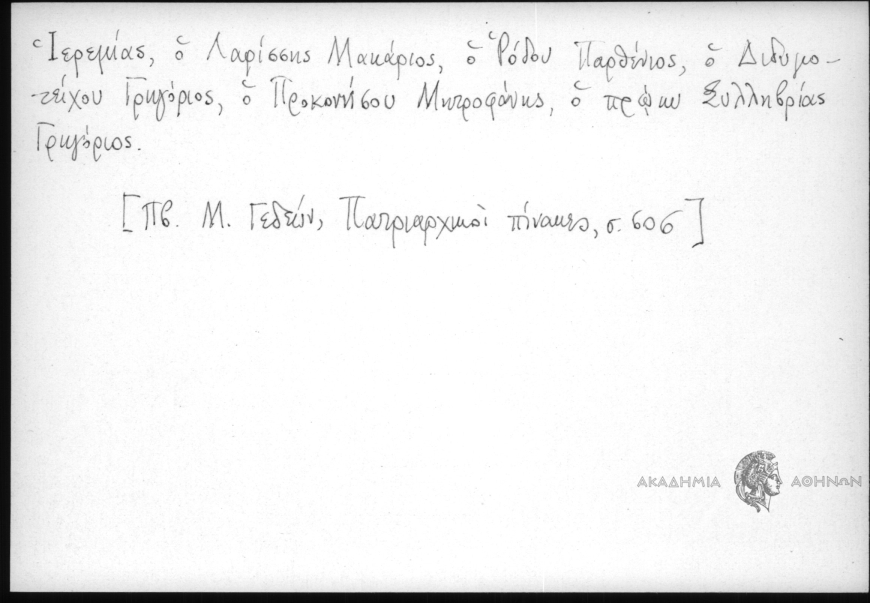 Ἱερεμίας, ὁ Λαρίσσης Μακάριος, ὁ Ῥόδου Παρθένιος, ὁ Διδυμο-
τείχου Γρηγόριος, ὁ Προκονήσου Μητροφάνης, ὁ πρῴην Συλληβρίας
Γρηγόριος.
[Πβ. Μ. Γεδεών, Πατριαρχικοὶ πίνακες, σ. 606]
ΑΚΑΔΗΜΙΑ ΑΘΗΝΩΝ